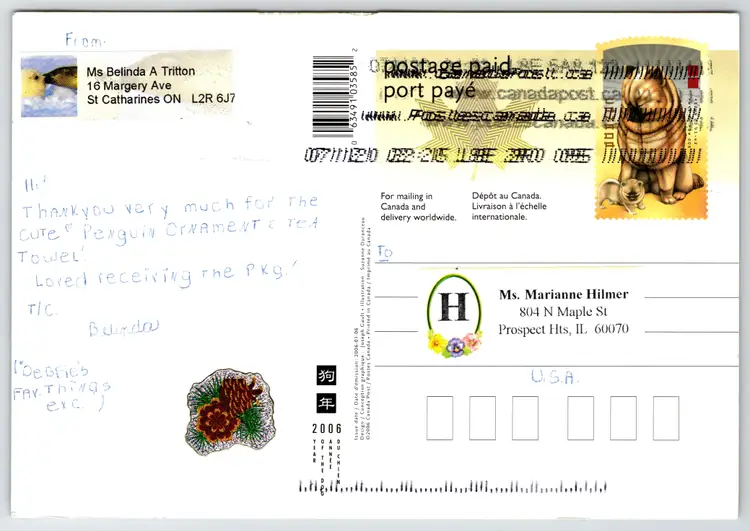 From:
Ms Belinda A Tritton
16 Margery Ave
St Catharines ON L2R 6J7
Hi!
Thankyou very much for the
cute Penguin Ornament & Tea
Towel!
Loved receiving the pkg!
T/C.
Belinda
(Debbie's
Fav Things
exc.)
63491 03585 2
postage paid
port payé
www.canadapost.ca
For mailing in
Canada and
delivery worldwide.
Dépôt au Canada.
Livraison à l'échelle
internationale.
To
H
Ms. Marianne Hilmer
804 N Maple St
Prospect Hts, IL 60070
U.S.A.
狗
年
2006
YEAR OF THE DOG
ANNÉE DU CHIEN
Issue date / Date d'émission: 2006-01-06
Design / Conception graphique: Joseph Gault • Illustration: Suzanne Duranceau
©2006 Canada Post / Postes Canada • Printed in Canada / Imprimé au Canada